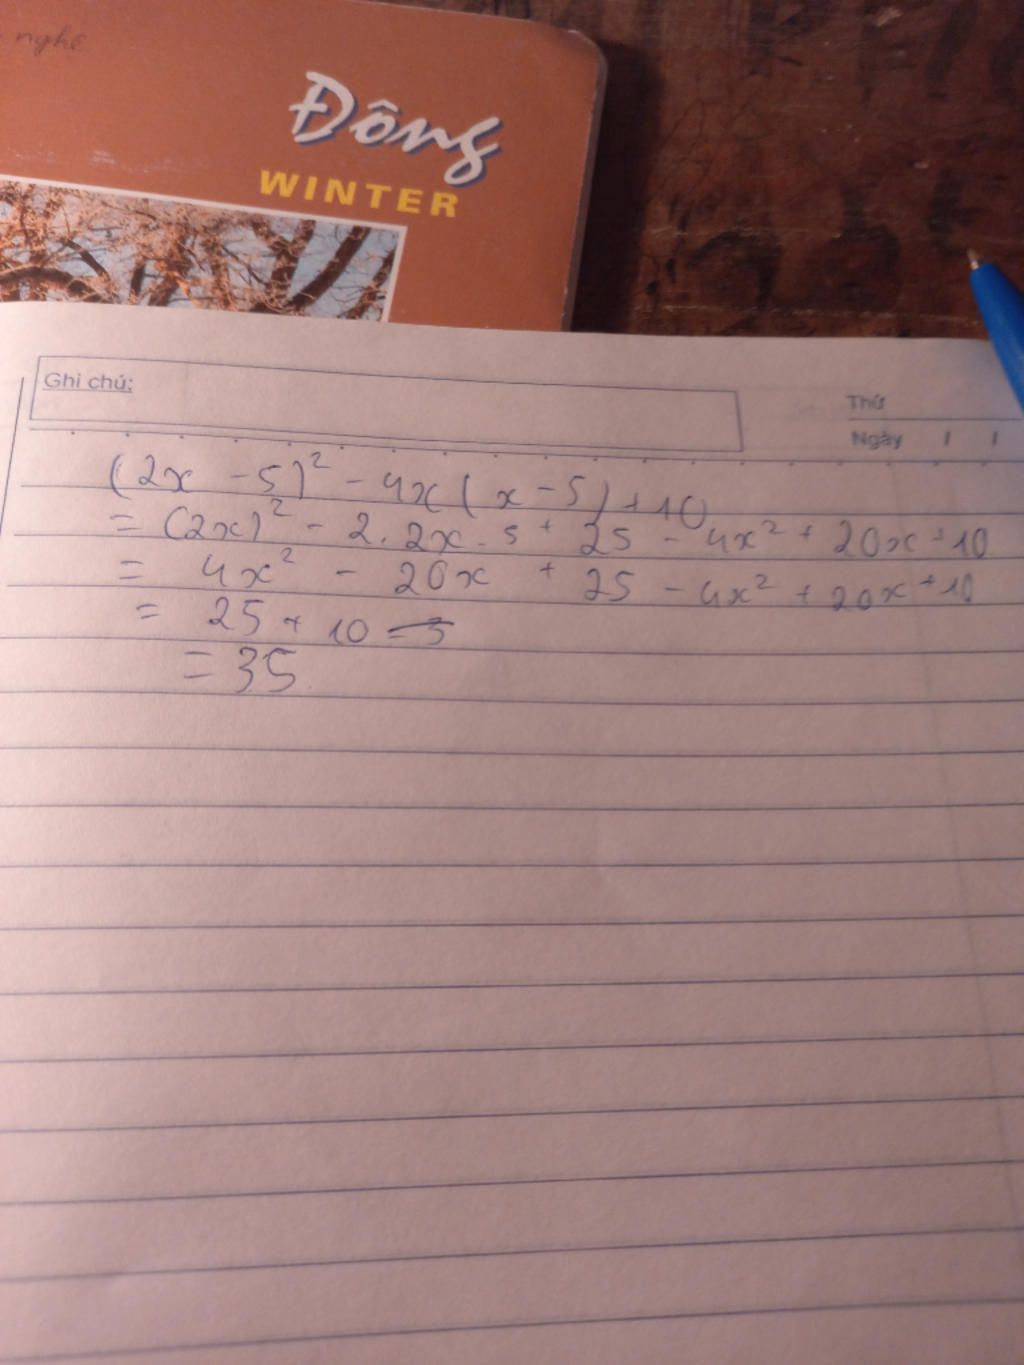 nghê
Đông
WINTER
Ghi chú:
Thứ
Ngày / /
(2x - 5)² - 4x(x - 5) + 10
= (2x)² - 2.2x.5 + 25 - 4x² + 20x + 10
= 4x² - 20x + 25 - 4x² + 20x + 10
= 25 + 10 = 5
= 35